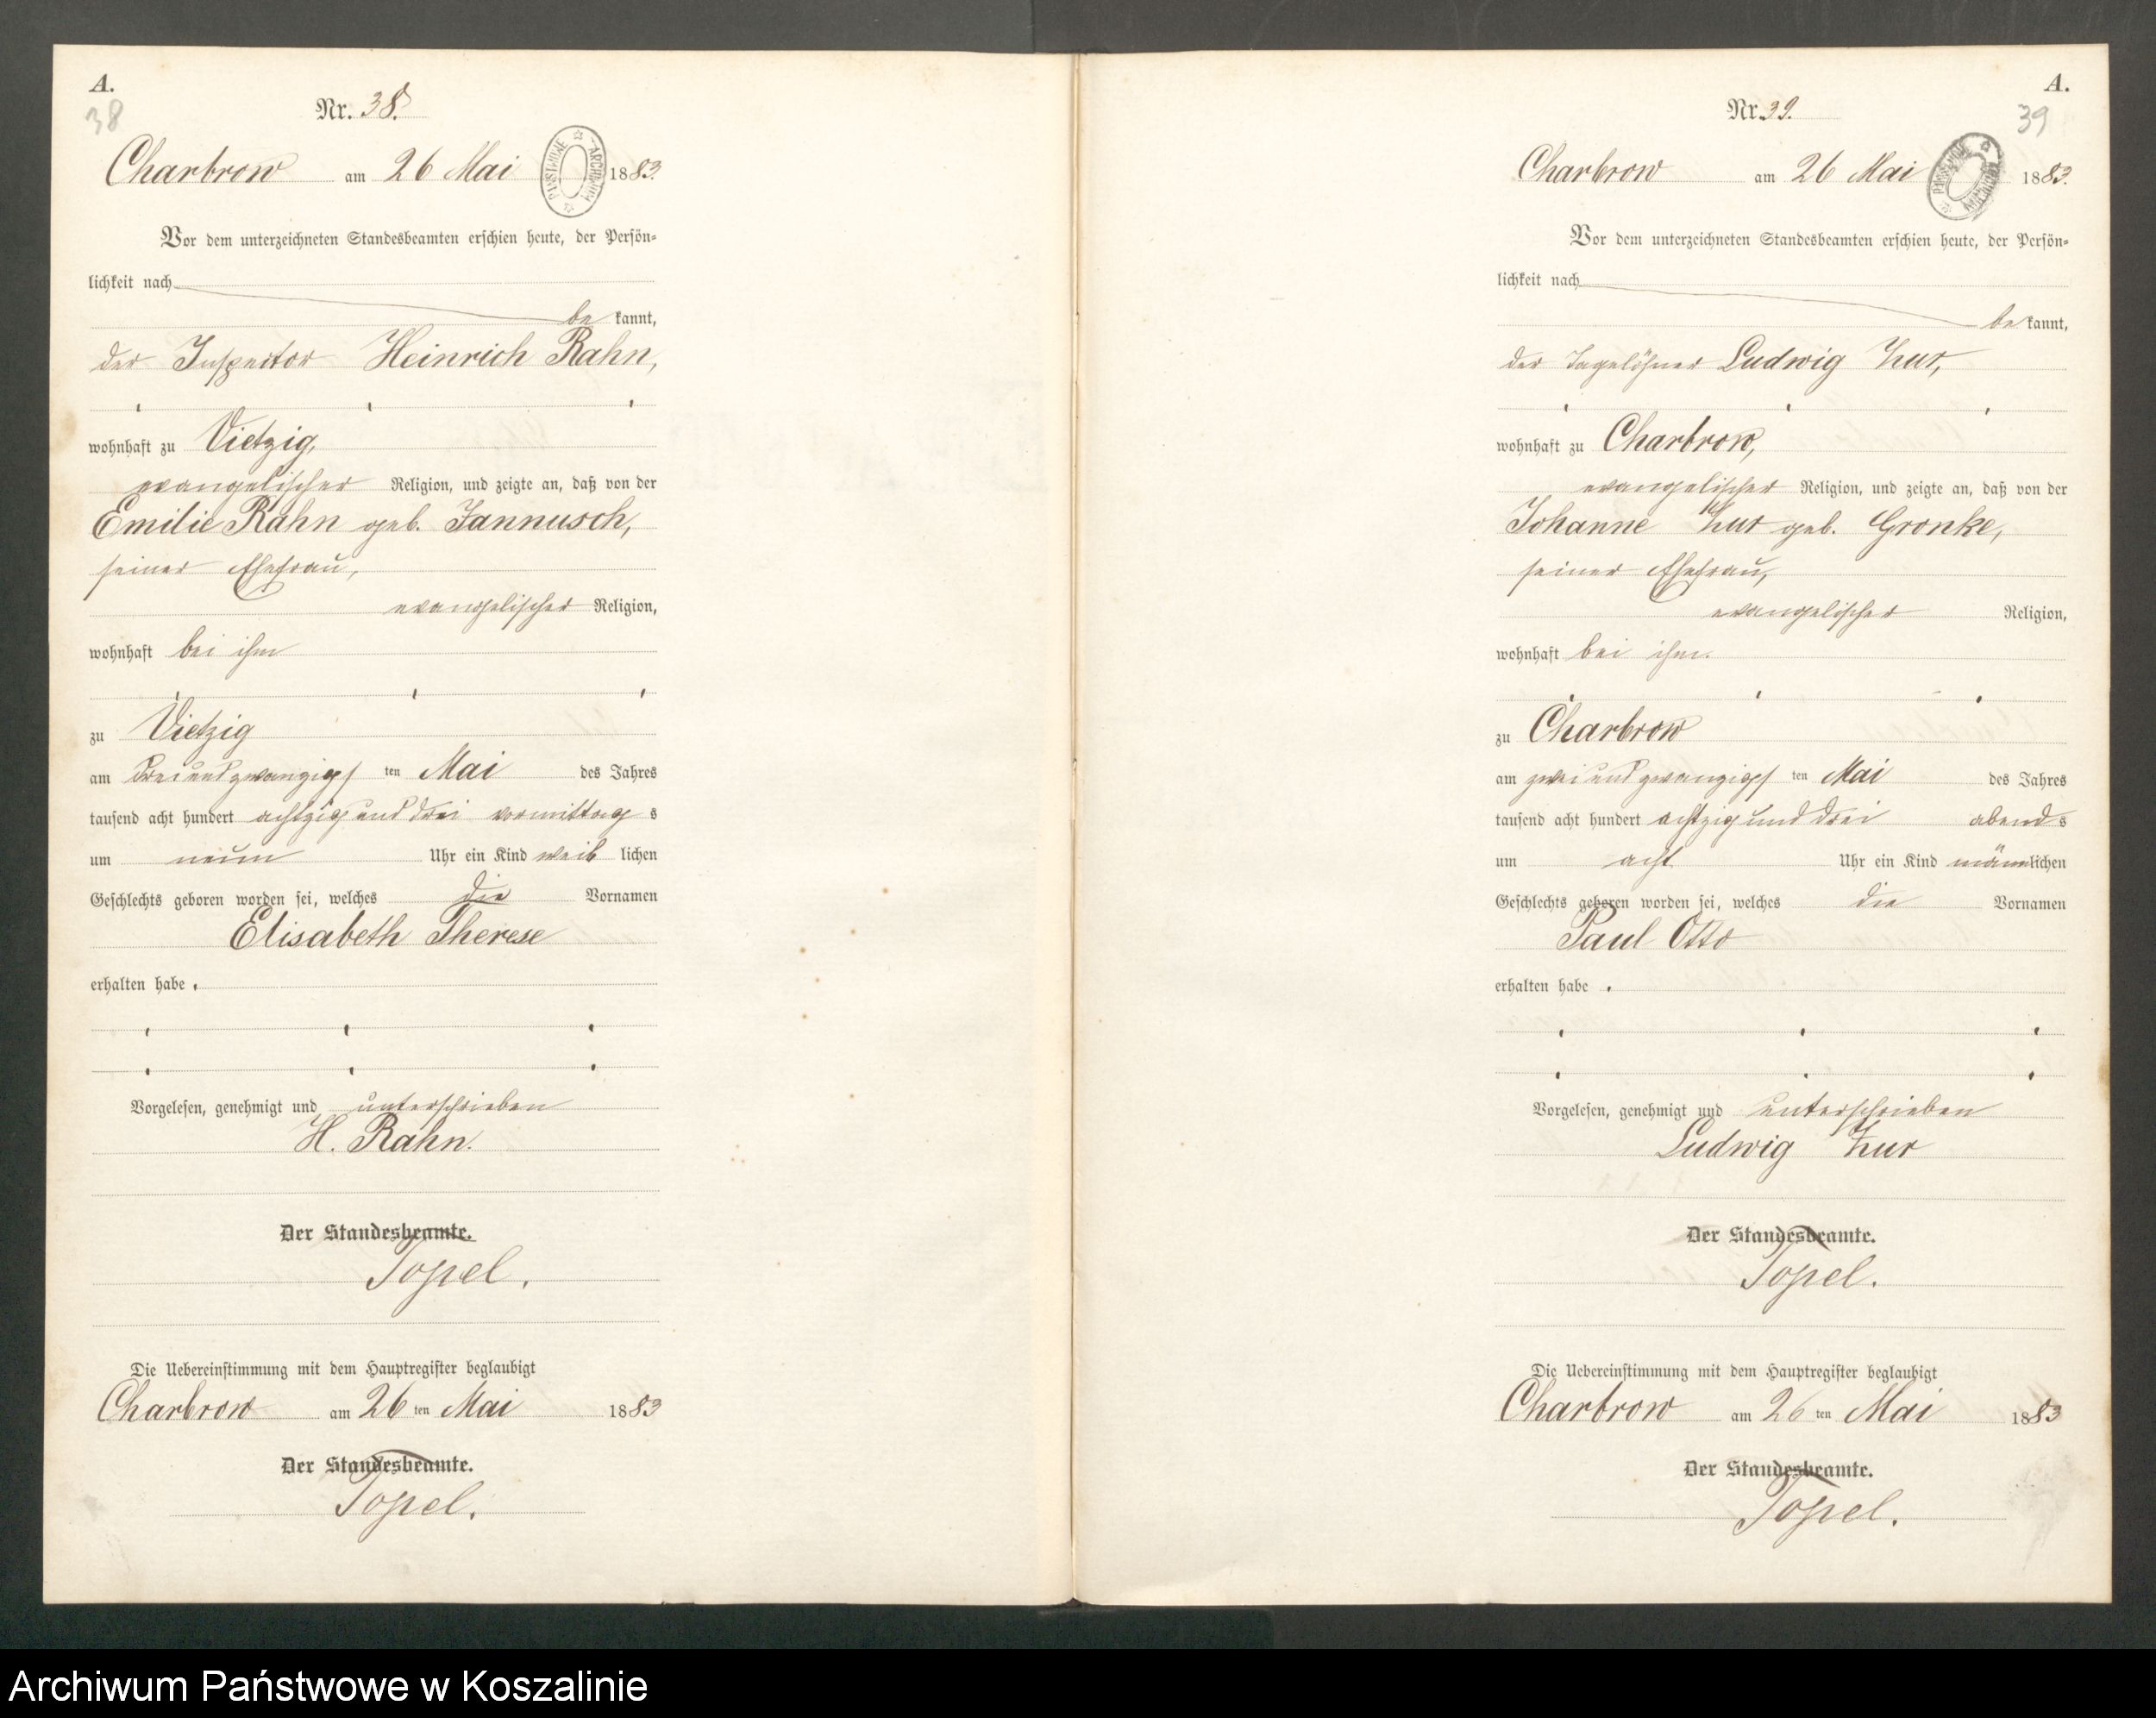 A.
38
Nr. 38.
Charbrow am 26 Mai 1883.
PAŃSTWOWE ARCHIWUM
Vor dem unterzeichneten Standesbeamten erschien heute, der Persön-
lichkeit nach
be kannt,
der Inspector Heinrich Rahn,
wohnhaft zu Vietzig,
evangelischer Religion, und zeigte an, daß von der
Emilie Rahn geb. Jannusch,
seiner Ehefrau,
evangelischer Religion,
wohnhaft bei ihm
zu Vietzig
am dreiundzwanzigs ten Mai des Jahres
tausend acht hundert achtzig und drei vormittag s
um neun Uhr ein Kind weib lichen
Geschlechts geboren worden sei, welches die Vornamen
Elisabeth Therese
erhalten habe.
Vorgelesen, genehmigt und unterschrieben
H. Rahn.
Der Standesbeamte.
Topel.
Die Uebereinstimmung mit dem Hauptregister beglaubigt
Charbrow am 26 ten Mai 1883
Der Standesbeamte.
Topel.
A.
39
Nr. 39.
Charbrow am 26 Mai 1883.
PAŃSTWOWE ARCHIWUM
Vor dem unterzeichneten Standesbeamten erschien heute, der Persön-
lichkeit nach
be kannt,
der Tagelöhner Ludwig Zur,
wohnhaft zu Charbrow,
evangelischer Religion, und zeigte an, daß von der
Johanne Zur geb. Gronke,
seiner Ehefrau,
evangelischer Religion,
wohnhaft bei ihm.
zu Charbrow
am zweiundzwanzigs ten Mai des Jahres
tausend acht hundert achtzig und drei abend s
um acht Uhr ein Kind männlichen
Geschlechts geboren worden sei, welches die Vornamen
Paul Otto
erhalten habe.
Vorgelesen, genehmigt und unterschrieben
Ludwig Zur
Der Standesbeamte.
Topel.
Die Uebereinstimmung mit dem Hauptregister beglaubigt
Charbrow am 26 ten Mai 1883
Der Standesbeamte.
Topel.
Archiwum Państwowe w Koszalinie